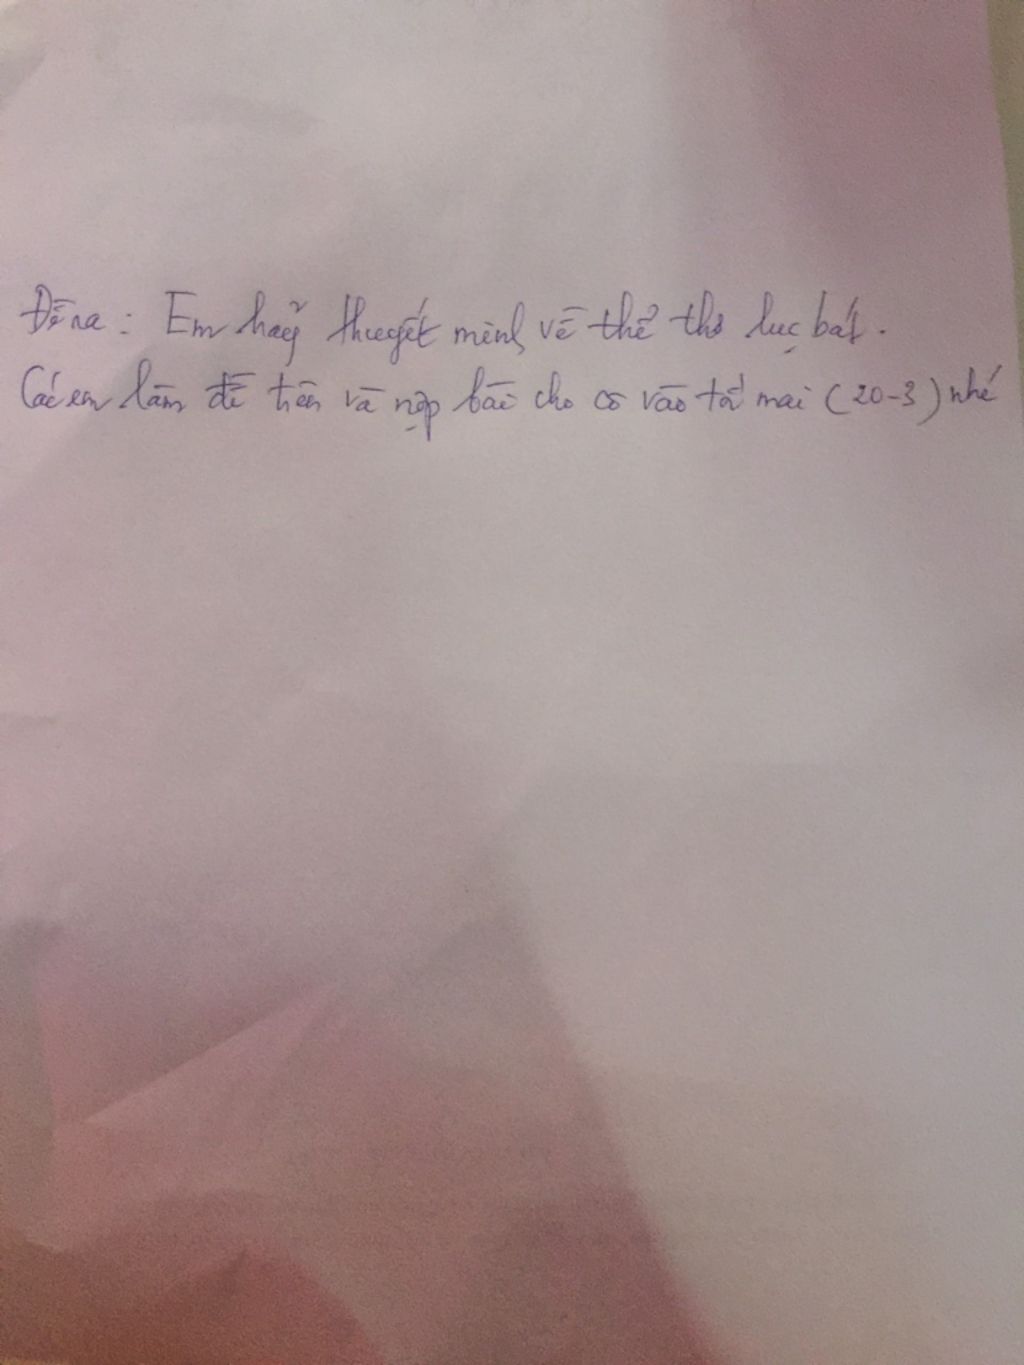 Đề ra: Em hãy thuyết minh về thể thơ lục bát.
Các em làm đề trên và nộp bài cho cô vào tối mai (20-3) nhé